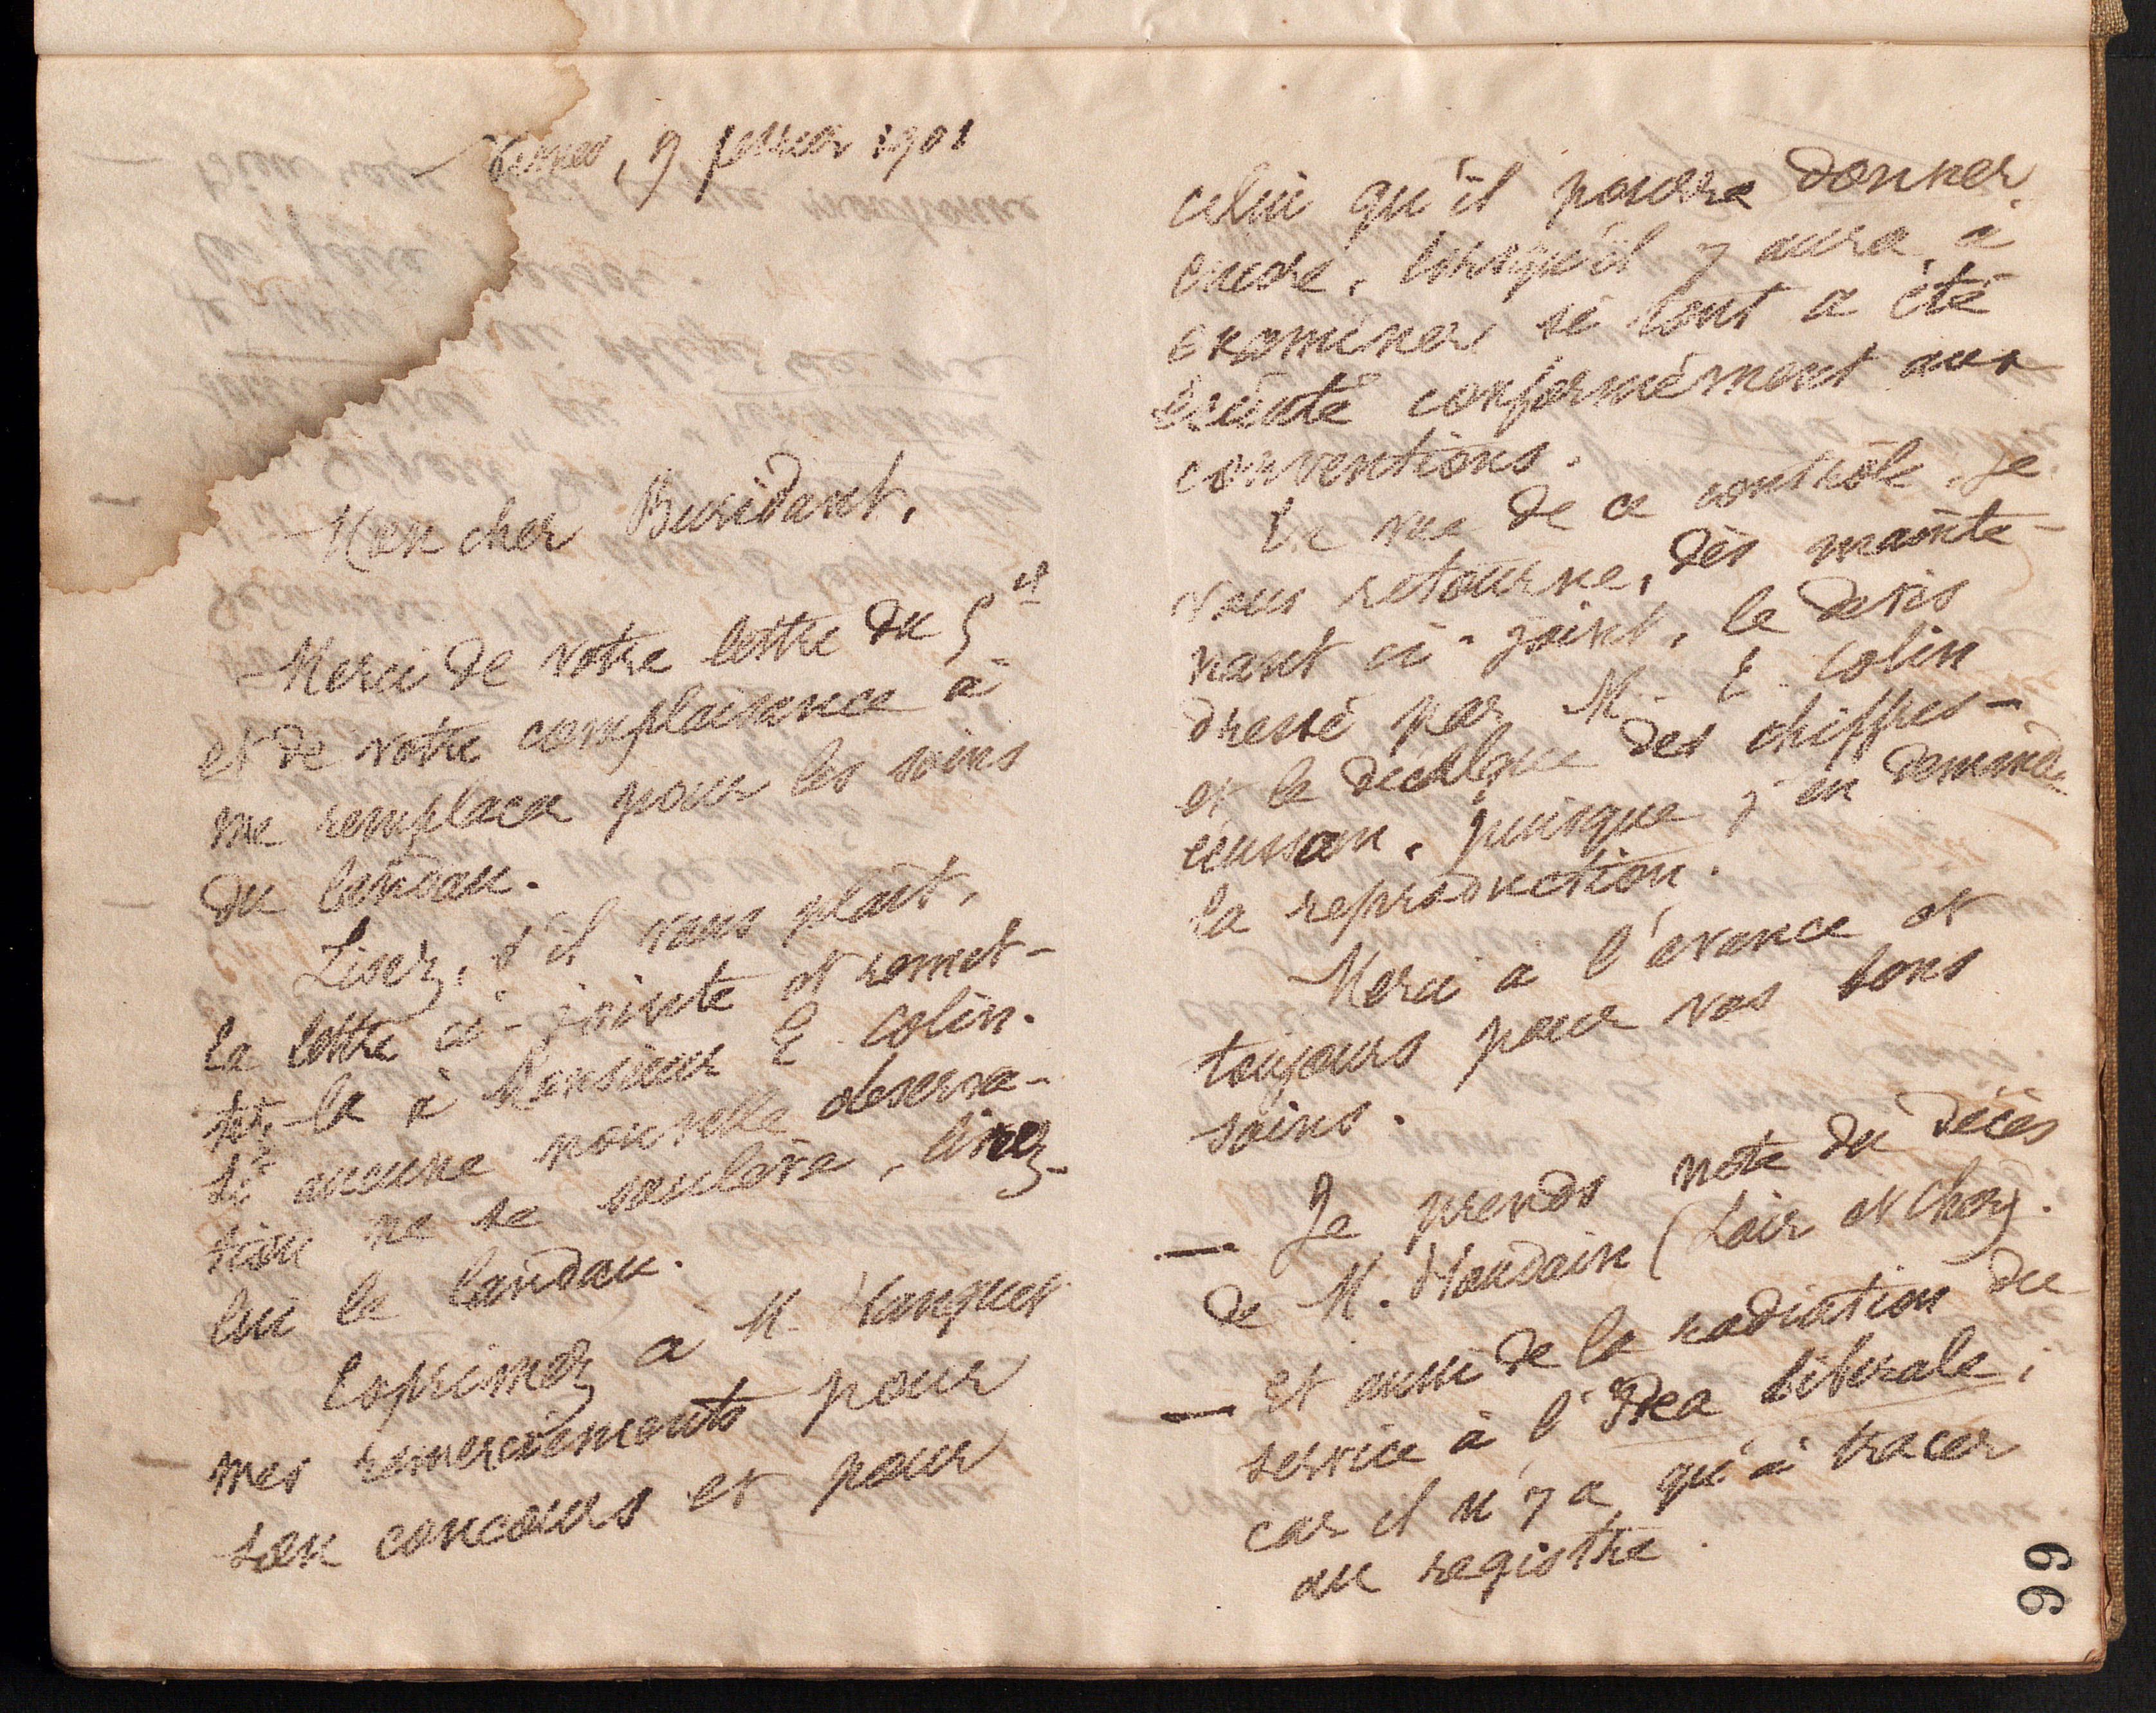 9 février 1901
Mon cher Buridant,
Merci de votre lettre du 5 ct
et de votre complaisance à
me remplacer pour les soins
du landau.
Lisez, s'il vous plaît,
la lettre ci-jointe et remet-
tez-la à Monsieur E. Colin.
Si aucune nouvelle observa-
tion ne se soulève, livrez-
lui le landau.
Exprimez à M. Hanquet
mes remerciements pour
son concours et pour
celui qu'il pourra donner
encore, lorsqu'il y aura à
examiner si tout a été
exécuté conformément aux
conventions.
En vue de ce contrôle, je
vous retourne, dès mainte-
nant ci-joint, le devis
dressé par M. E. Colin
et le décalque des chiffres-
écusson, puisque j'en demande
la reproduction.
Merci à l'avance et
toujours pour vos bons
soins.
— Je prends note du décès
de M. Houdain (Loir et Cher).
— et aussi de la radiation du
service à l'Idea liberale;
car il n'y a qu'à tracer
au registre.
99